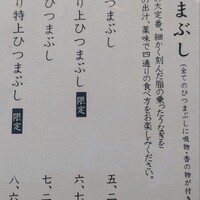 まぶし
(全てのひつまぶしに吸物・香の物が付き
大定番。細かく刻んだ脂の乗ったうなぎを
の出汁、薬味で四通りの食べ方をお楽しみください。
五、二
まぶし
六、七
上ひつまぶし 限定
七、二
り特上ひつまぶし 限定
八、六